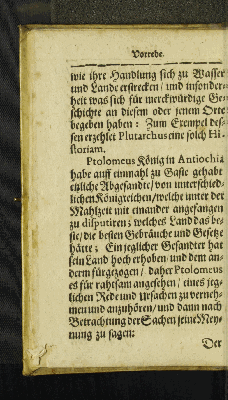 Vorrede.
wie ihre Handlung sich zu Wasser
und Lande erstrecken / und insonder-
heit was sich für merckwürdige Ge-
schichte an diesem oder jenem Orte
begeben haben: Zum Exempel des-
sen erzehlet Plutarchus eine solch Hi-
storiam.
Ptolomeus König in Antiochia
habe auff einmahl zu Gaste gehabt
etzliche Abgesandte / von unterschied-
lichen Königreichen / welche unter der
Mahlzeit mit einander angefangen
zu disputiren; welches Land das be-
ste / die besten Gebräuche und Gesetze
hätte; Ein jeglicher Gesandter hat
sein Land hoch erhoben und dem an-
dern fürgezogen / daher Ptolomeus
es für rahtsam angesehen / eines jeg-
lichen Rede und Ursachen zu verneh-
men und anzuhören / und dann nach
Betrachtung der Sachen seine Mey-
nung zu sagen:
Der